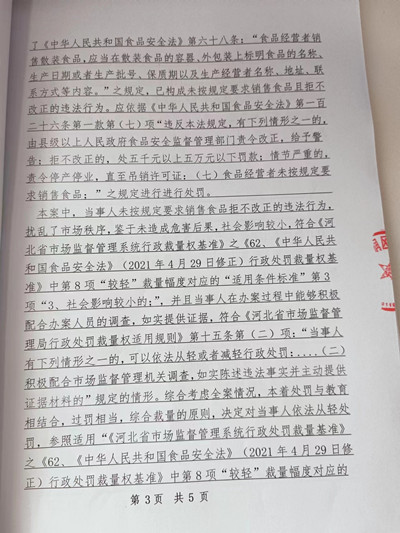 了《中华人民共和国食品安全法》第六十八条："食品经营者销
售散装食品，应当在散装食品的容器、外包装上标明食品的名称、
生产日期或者生产批号、保质期以及生产经营者名称、地址、联
系方式等内容。"之规定，已构成未按规定要求销售食品且拒不
改正的违法行为。应依据《中华人民共和国食品安全法》第一百
二十六条第一款第（七）项"违反本法规定，有下列情形之一的，
由县级以上人民政府食品安全监督管理部门责令改正，给予警
告；拒不改正的，处五千元以上五万元以下罚款；情节严重的，
责令停产停业，直至吊销许可证；（七）食品经营者未按规定要
求销售食品；"之规定进行进行处罚。
本案中，当事人未按规定要求销售食品拒不改正的违法行为，
扰乱了市场秩序，鉴于未造成危害后果，社会影响较小，符合《河
北省市场监督管理系统行政裁量权基准》之《62、《中华人民共
和国食品安全法》（2021年4月29日修正）行政处罚裁量权基
准》中第8项"较轻"裁量幅度对应的"适用条件标准"第3
项"3、社会影响较小的；"，并且当事人在办案过程中能够积极
配合办案人员的调查，如实提供证据，符合《河北省市场监督管
理局行政处罚裁量权适用规则》第十五条第（二）项："当事人
有下列情形之一的，可以依法从轻或者减轻行政处罚：....（二）
积极配合市场监督管理机关调查，如实陈述违法事实并主动提供
证据材料的"规定的情形。综合考虑全案情况，本着处罚与教育
相结合，过罚相当，综合裁量的原则，决定对当事人依法从轻处
罚，参照适用"《河北省市场监督管理系统行政处罚裁量权基准》
之《62、《中华人民共和国食品安全法》（2021年4月29日修
正）行政处罚裁量权基准》中第8项"较轻"裁量幅度对应的
第3页 共5页